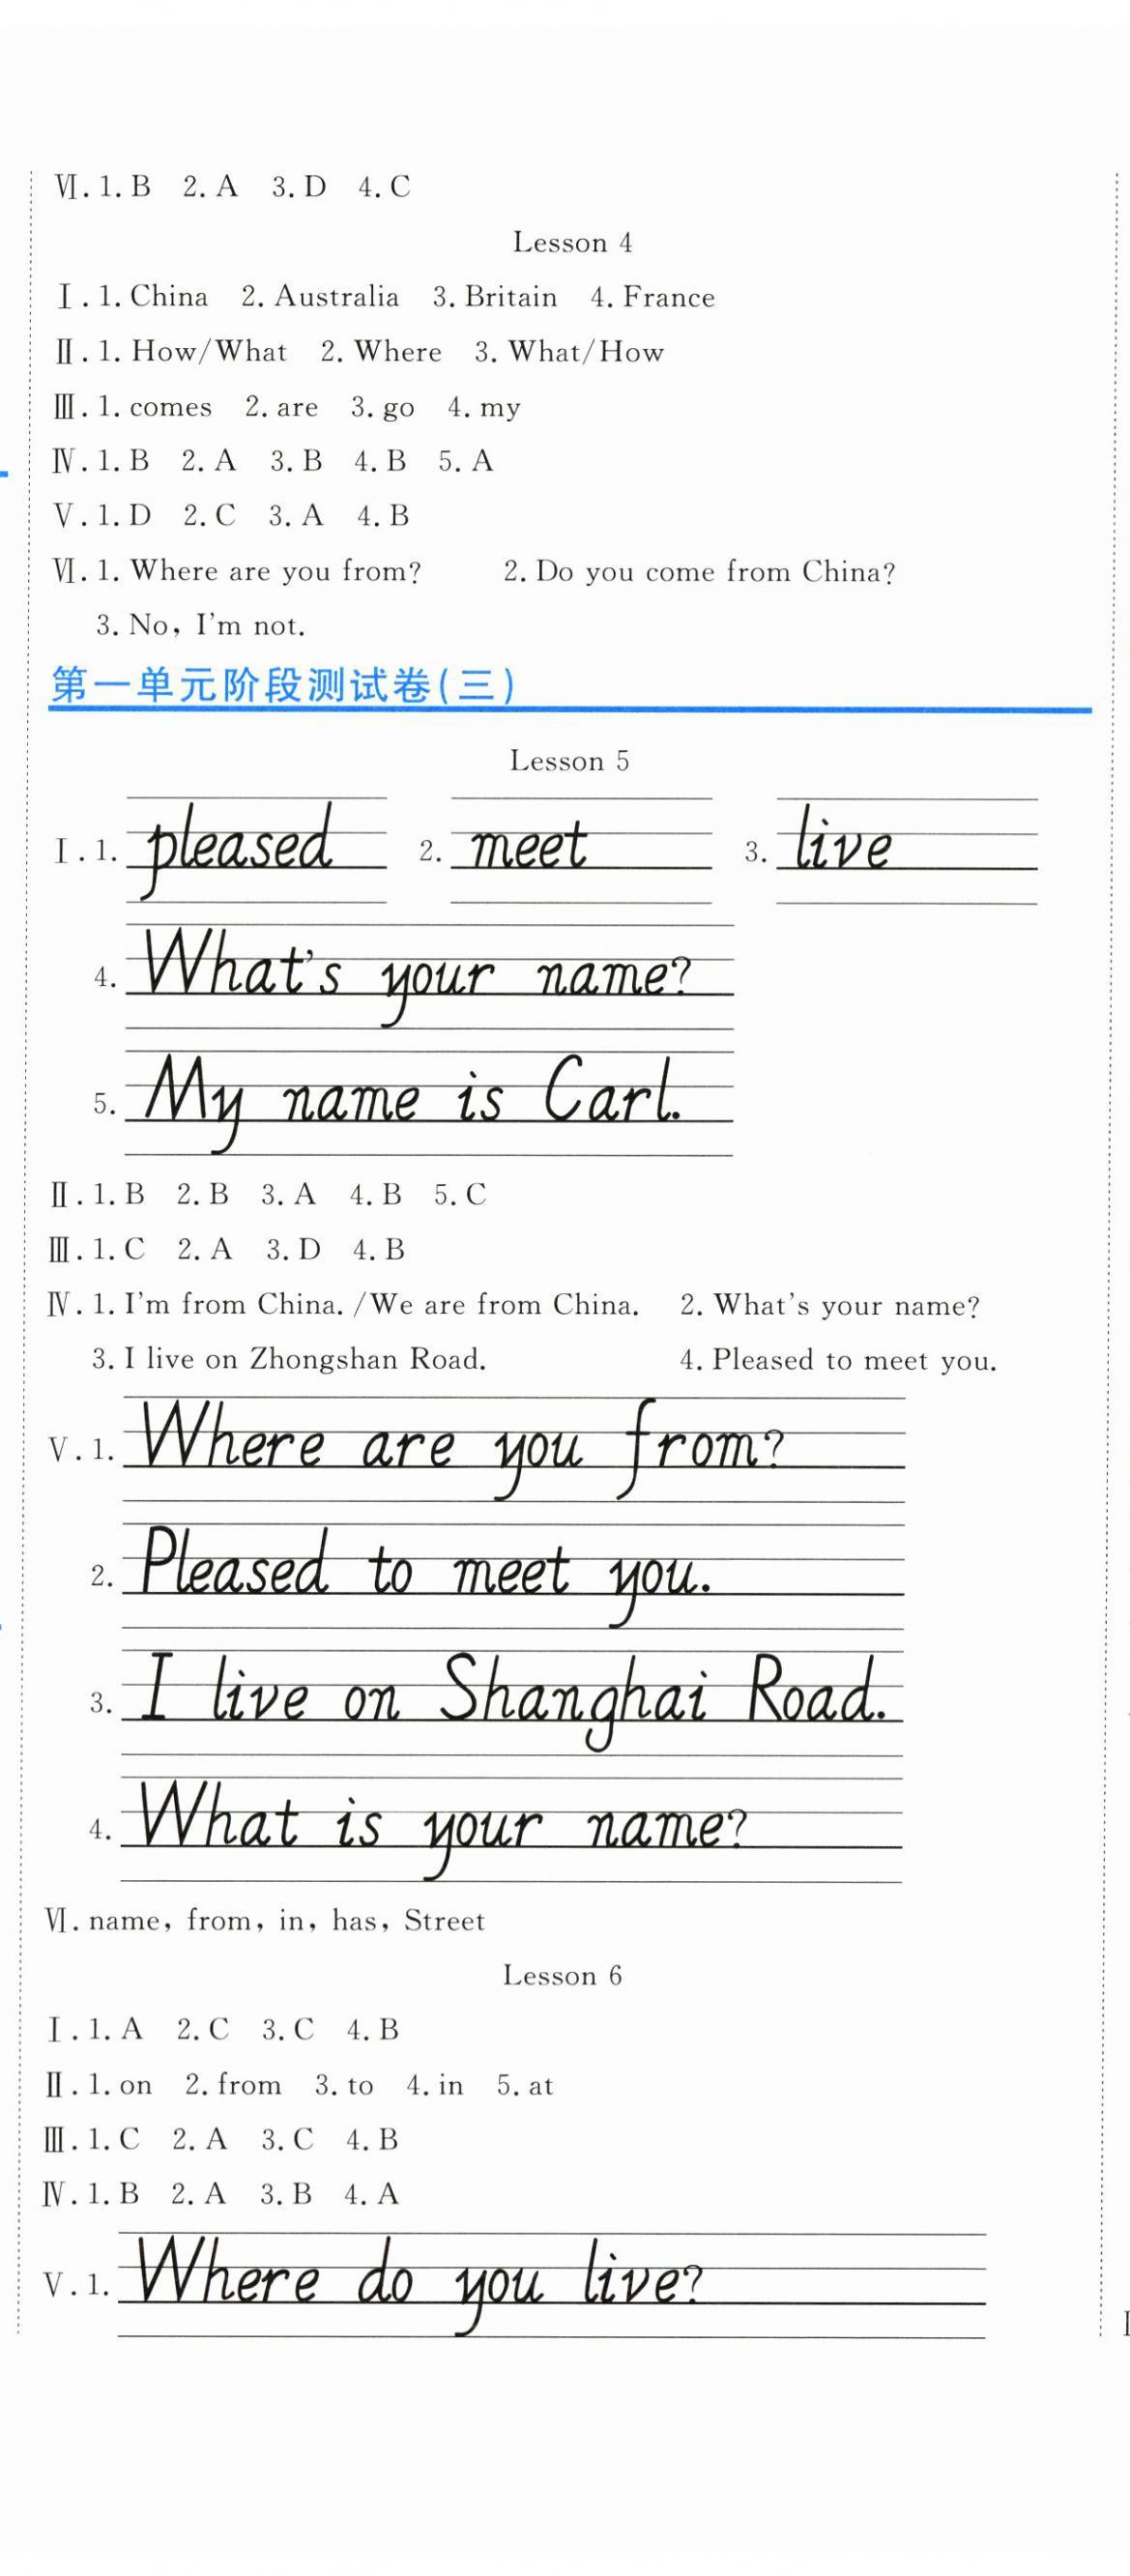 Ⅵ. 1. B 2. A 3. D 4. C
Lesson 4
Ⅰ. 1. China 2. Australia 3. Britain 4. France
Ⅱ. 1. How/What 2. Where 3. What/How
Ⅲ. 1. comes 2. are 3. go 4. my
Ⅳ. 1. B 2. A 3. B 4. B 5. A
Ⅴ. 1. D 2. C 3. A 4. B
Ⅵ. 1. Where are you from? 2. Do you come from China?
3. No, I'm not.
第一单元阶段测试卷(三)
Lesson 5
Ⅰ. 1. pleased 2. meet 3. live
4. What's your name?
5. My name is Carl.
Ⅱ. 1. B 2. B 3. A 4. B 5. C
Ⅲ. 1. C 2. A 3. D 4. B
Ⅳ. 1. I'm from China. /We are from China. 2. What's your name?
3. I live on Zhongshan Road. 4. Pleased to meet you.
Ⅴ. 1. Where are you from?
2. Pleased to meet you.
3. I live on Shanghai Road.
4. What is your name?
Ⅵ. name, from, in, has, Street
Lesson 6
Ⅰ. 1. A 2. C 3. C 4. B
Ⅱ. 1. on 2. from 3. to 4. in 5. at
Ⅲ. 1. C 2. A 3. C 4. B
Ⅳ. 1. B 2. A 3. B 4. A
Ⅴ. 1. Where do you live?